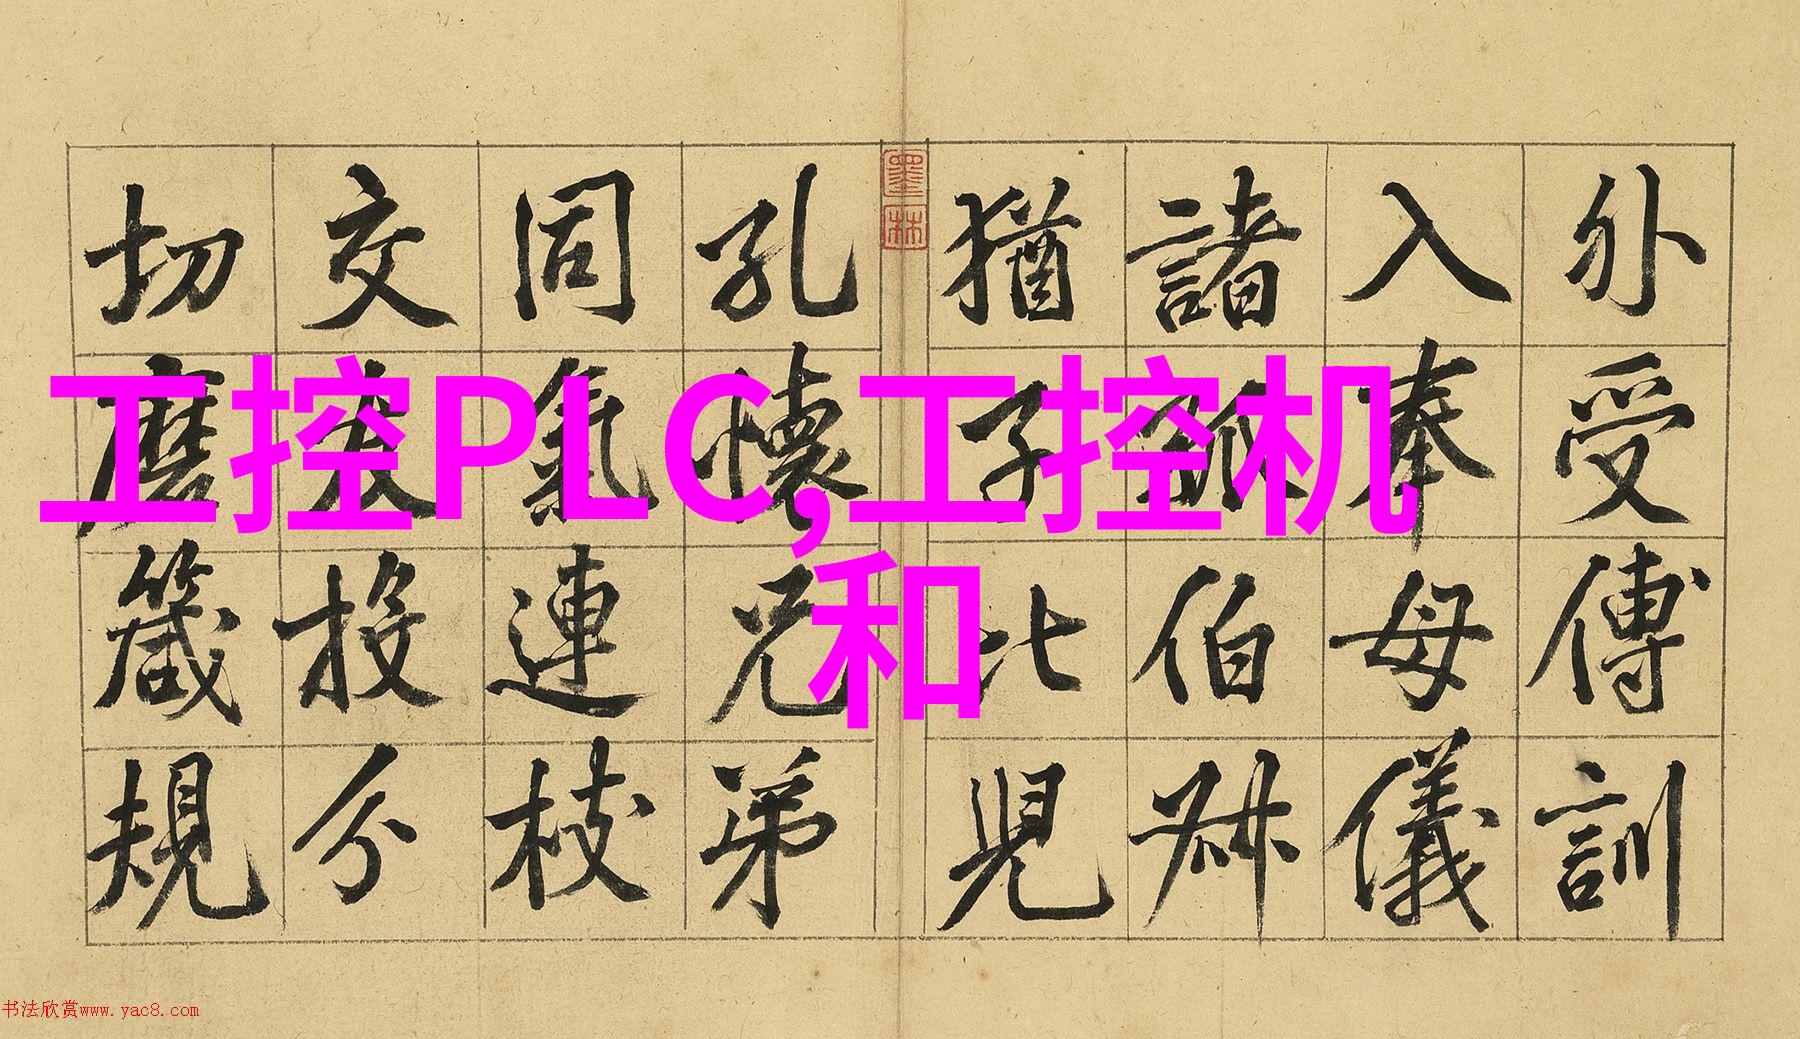 外受傅訓
入奉母儀
諸姑伯叔
猶子比兒
墨林
孔懷兄弟
同氣連枝
交友投分
切磨箴規
工控PLC,工控机
和
书法欣赏www.yac8.com